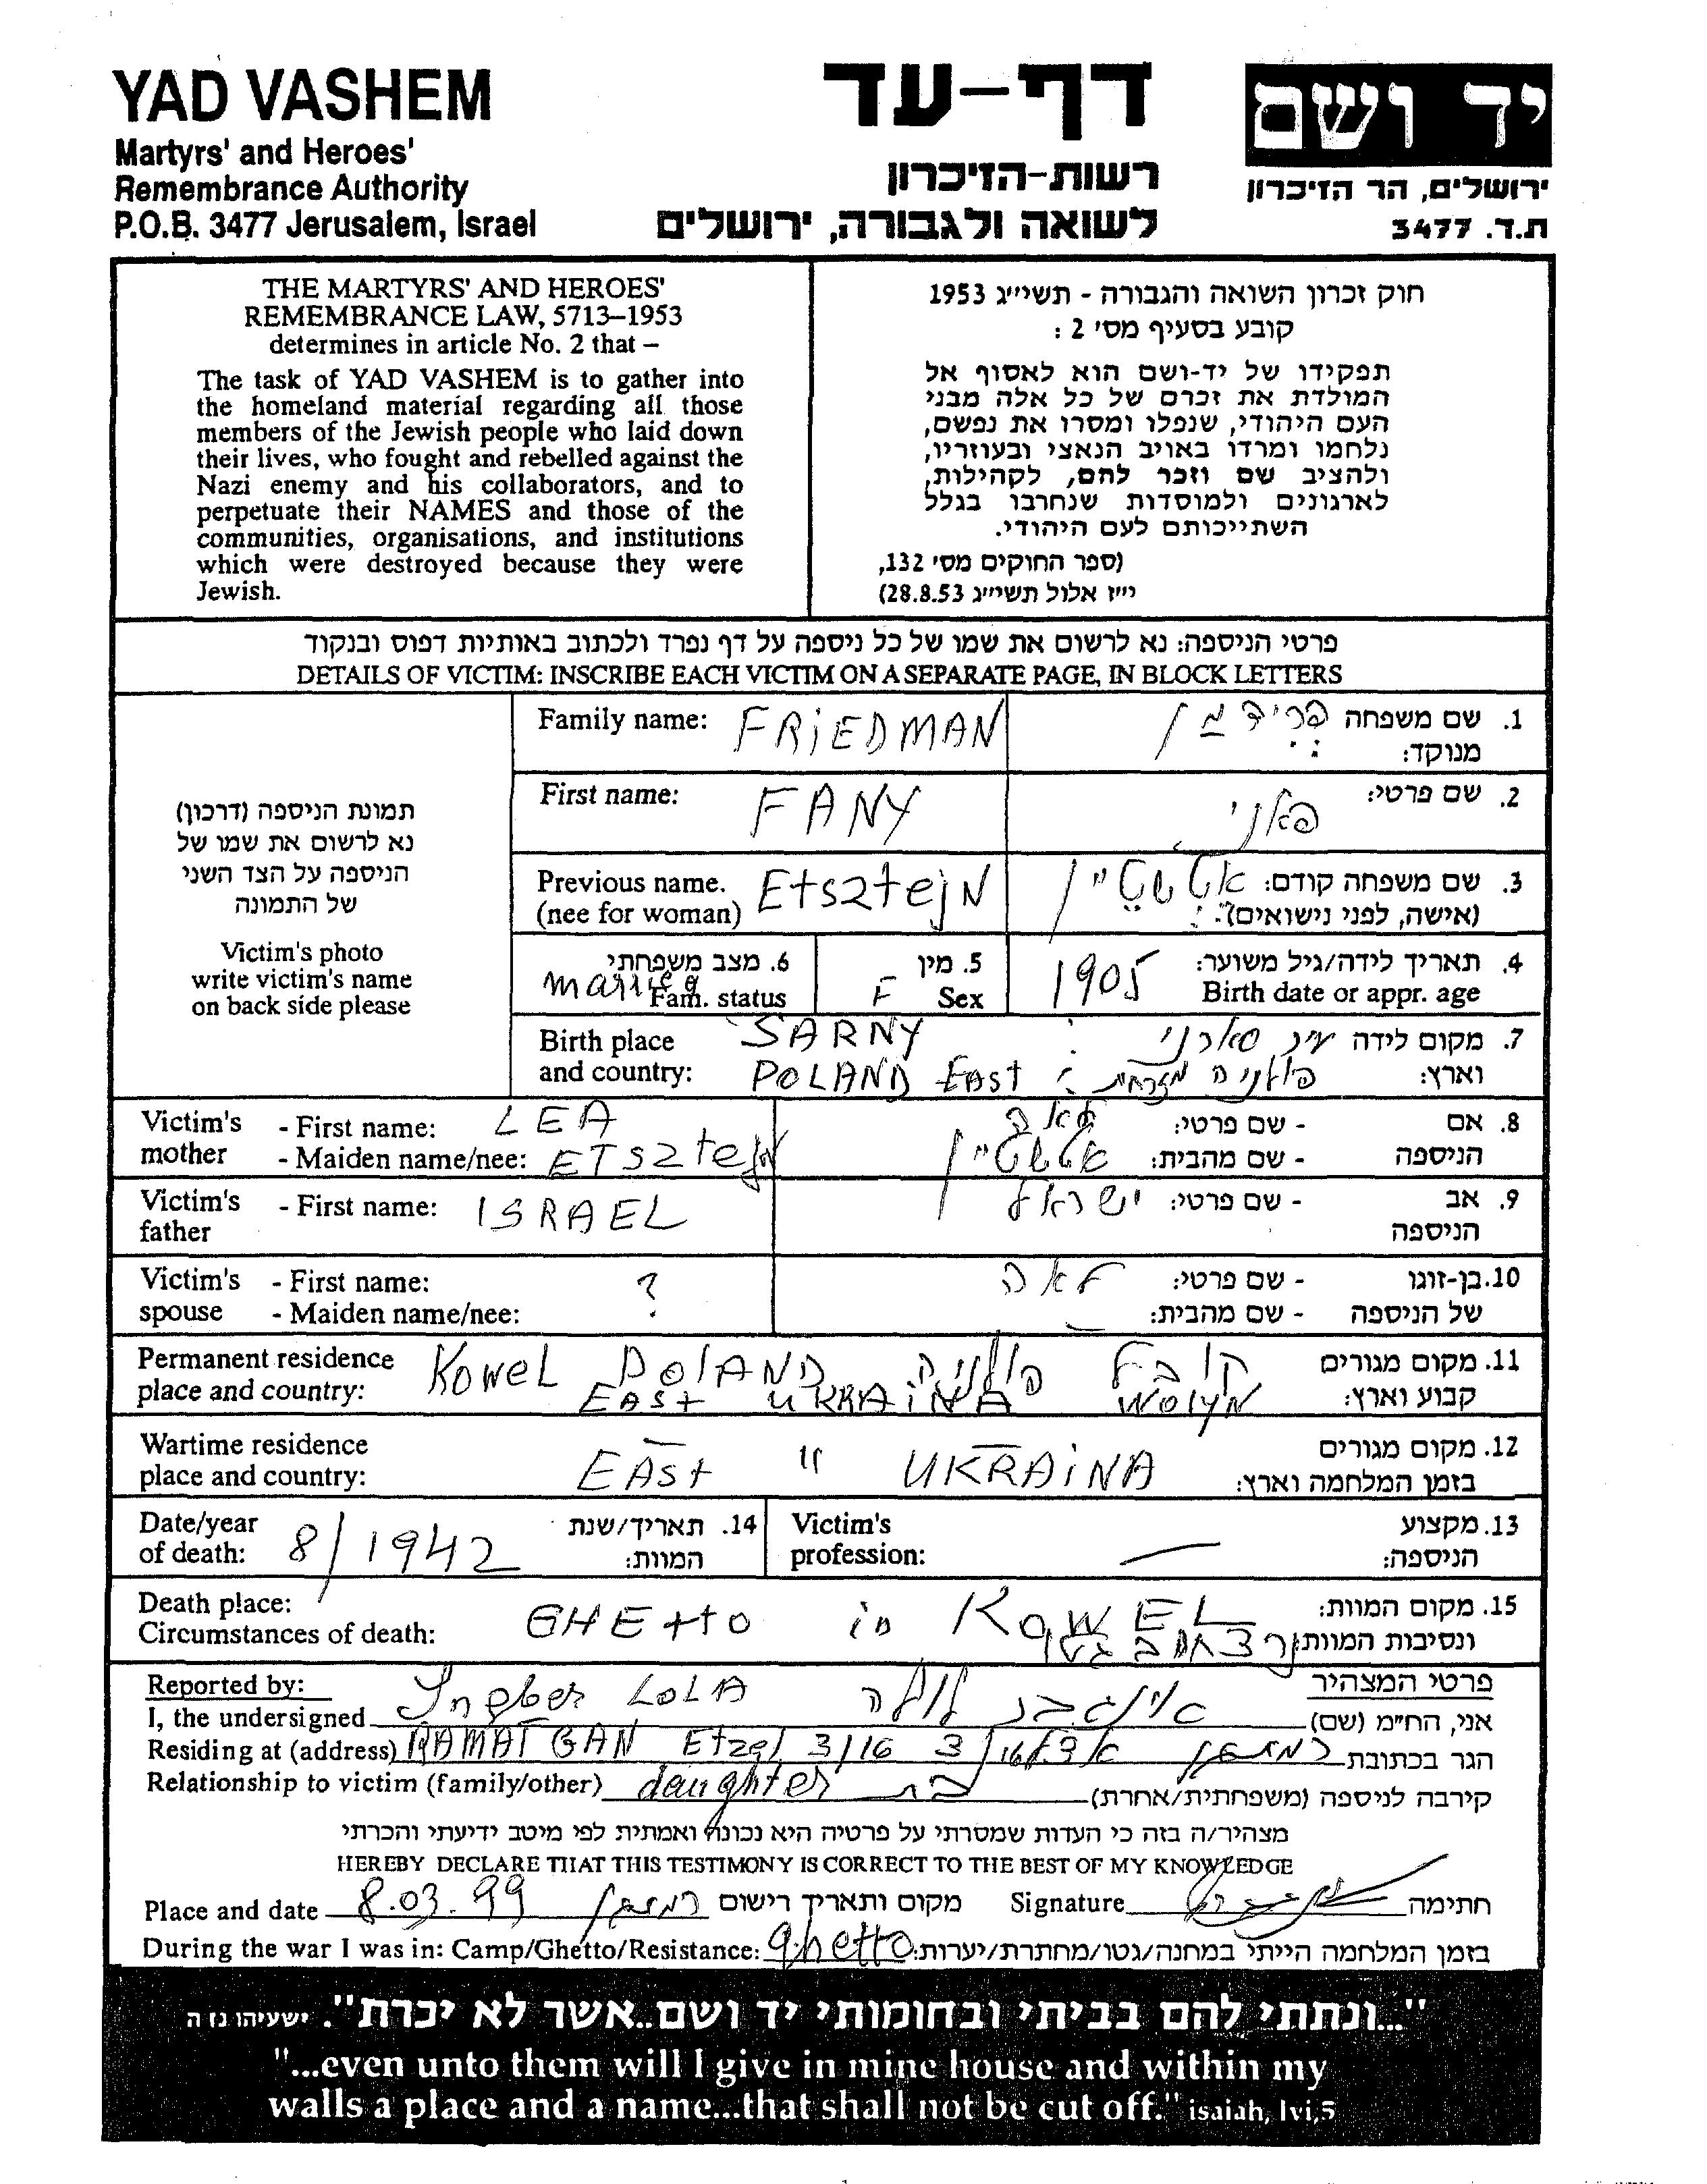 YAD VASHEM
Martyrs' and Heroes'
Remembrance Authority
P.O.B. 3477 Jerusalem, Israel
דף-עד
רשות-הזיכרון
לשואה ולגבורה, ירושלים
יד ושם
ירושלים, הר הזיכרון
ת.ד. 3477
THE MARTYRS' AND HEROES'
REMEMBRANCE LAW, 5713–1953
determines in article No. 2 that –
The task of YAD VASHEM is to gather into
the homeland material regarding all those
members of the Jewish people who laid down
their lives, who fought and rebelled against the
Nazi enemy and his collaborators, and to
perpetuate their NAMES and those of the
communities, organisations, and institutions
which were destroyed because they were
Jewish.
חוק זכרון השואה והגבורה - תשי״ג 1953
קובע בסעיף מס׳ 2 :
תפקידו של יד-ושם הוא לאסוף אל
המולדת את זכרם של כל אלה מבני
העם היהודי, שנפלו ומסרו את נפשם,
נלחמו ומרדו באויב הנאצי ובעוזריו,
ולהציב שם וזכר להם, לקהילות,
לארגונים ולמוסדות שנחרבו בגלל
השתייכותם לעם היהודי.
(ספר החוקים מס׳ 132,
י״ז אלול תשי״ג 28.8.53)
פרטי הניספה: נא לרשום את שמו של כל ניספה על דף נפרד ולכתוב באותיות דפוס ובנקוד
DETAILS OF VICTIM: INSCRIBE EACH VICTIM ON A SEPARATE PAGE, IN BLOCK LETTERS
תמונת הניספה (דרכון)
נא לרשום את שמו של
הניספה על הצד השני
של התמונה
Victim's photo
write victim's name
on back side please
Family name: FRiEDMAN פרידמן 1. שם משפחה
מנוקד:
First name: FANY פאני 2. שם פרטי:
Previous name. Etsztejn אטשטיין 3. שם משפחה קודם:
(nee for woman) (אישה, לפני נישואים):
6. מצב משפחתי 5. מין 4. תאריך לידה/גיל משוער:
married Fam. status F Sex 1905 Birth date or appr. age
Birth place SARNY סארני 7. מקום לידה
and country: POLAND East פולניה מזרחית וארץ:
Victim's - First name: LEA לאה - שם פרטי: 8. אם
mother - Maiden name/nee: ETSztejn אטשטיין - שם מהבית: הניספה
Victim's - First name: ISRAEL ישראל - שם פרטי: 9. אב
father הניספה
Victim's - First name: ? לאה - שם פרטי: 10. בן-זוגו
spouse - Maiden name/nee: - שם מהבית: של הניספה
Permanent residence Kowel POlAND פולניה קובל 11. מקום מגורים
place and country: EASt UKRAiNA WOlyN קבוע וארץ:
Wartime residence 12. מקום מגורים
place and country: EASt " UKRAiNA בזמן המלחמה וארץ:
Date/year 8/1942 14. תאריך/שנת Victim's 13. מקצוע
of death: המוות: profession: — הניספה:
Death place: GHEtto in KOWEL 15. מקום המוות:
Circumstances of death: נרצחה בגטו ונסיבות המוות:
Reported by: פרטי המצהיר
I, the undersigned Ingber LOLA אינגבר לולה אני, הח״מ (שם)
Residing at (address) RAMAT GAN Etzel 3/16 אצל 3/16 רמת גן הגר בכתובת
Relationship to victim (family/other) daughter בת קירבה לניספה (משפחתית/אחרת)
מצהיר/ה בזה כי העדות שמסרתי על פרטיה היא נכונה ואמתית לפי מיטב ידיעתי והכרתי
HEREBY DECLARE THAT THIS TESTIMONY IS CORRECT TO THE BEST OF MY KNOWLEDGE
Place and date 8.03.99 רמת גן מקום ותאריך רישום Signature חתימה
During the war I was in: Camp/Ghetto/Resistance: ghetto בזמן המלחמה הייתי במחנה/גטו/מחתרת/יערות:
"...ונתתי להם בביתי ובחומותי יד ושם..אשר לא יכרת". ישעיהו נו ה
"...even unto them will I give in mine house and within my
walls a place and a name...that shall not be cut off." isaiah, lvi,5